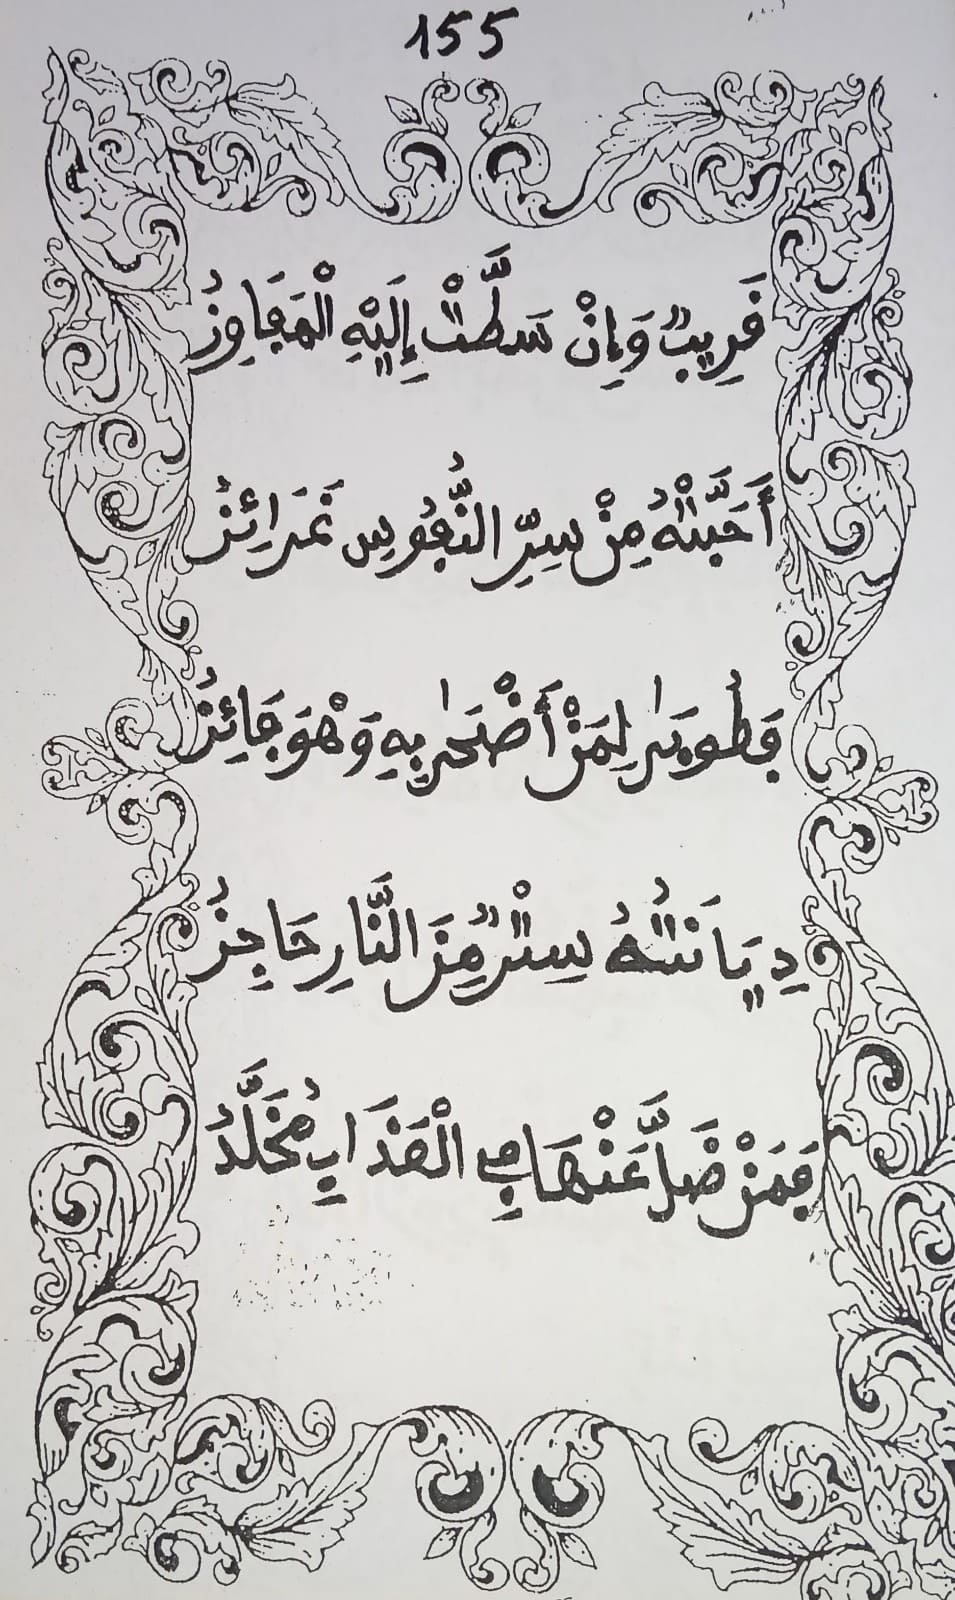 155
قَرِيبٌ وَإِنْ سَطَّتْ إِلَيْهِ الْمَفَاوِزُ
أَحَبَّتْهُ مِنْ سِرِّ النُّفُوسِ غَرَائِزُ
فَطُوبَى لِمَنْ أَضْحَى بِهِ وَهْوَ فَائِزُ
دِيَانَتُهُ سِتْرٌ مِّنَ النَّارِ حَاجِزُ
فَمَنْ ضَلَّ عَنْهَا فِي الْعَذَابِ مُخَلَّدُ